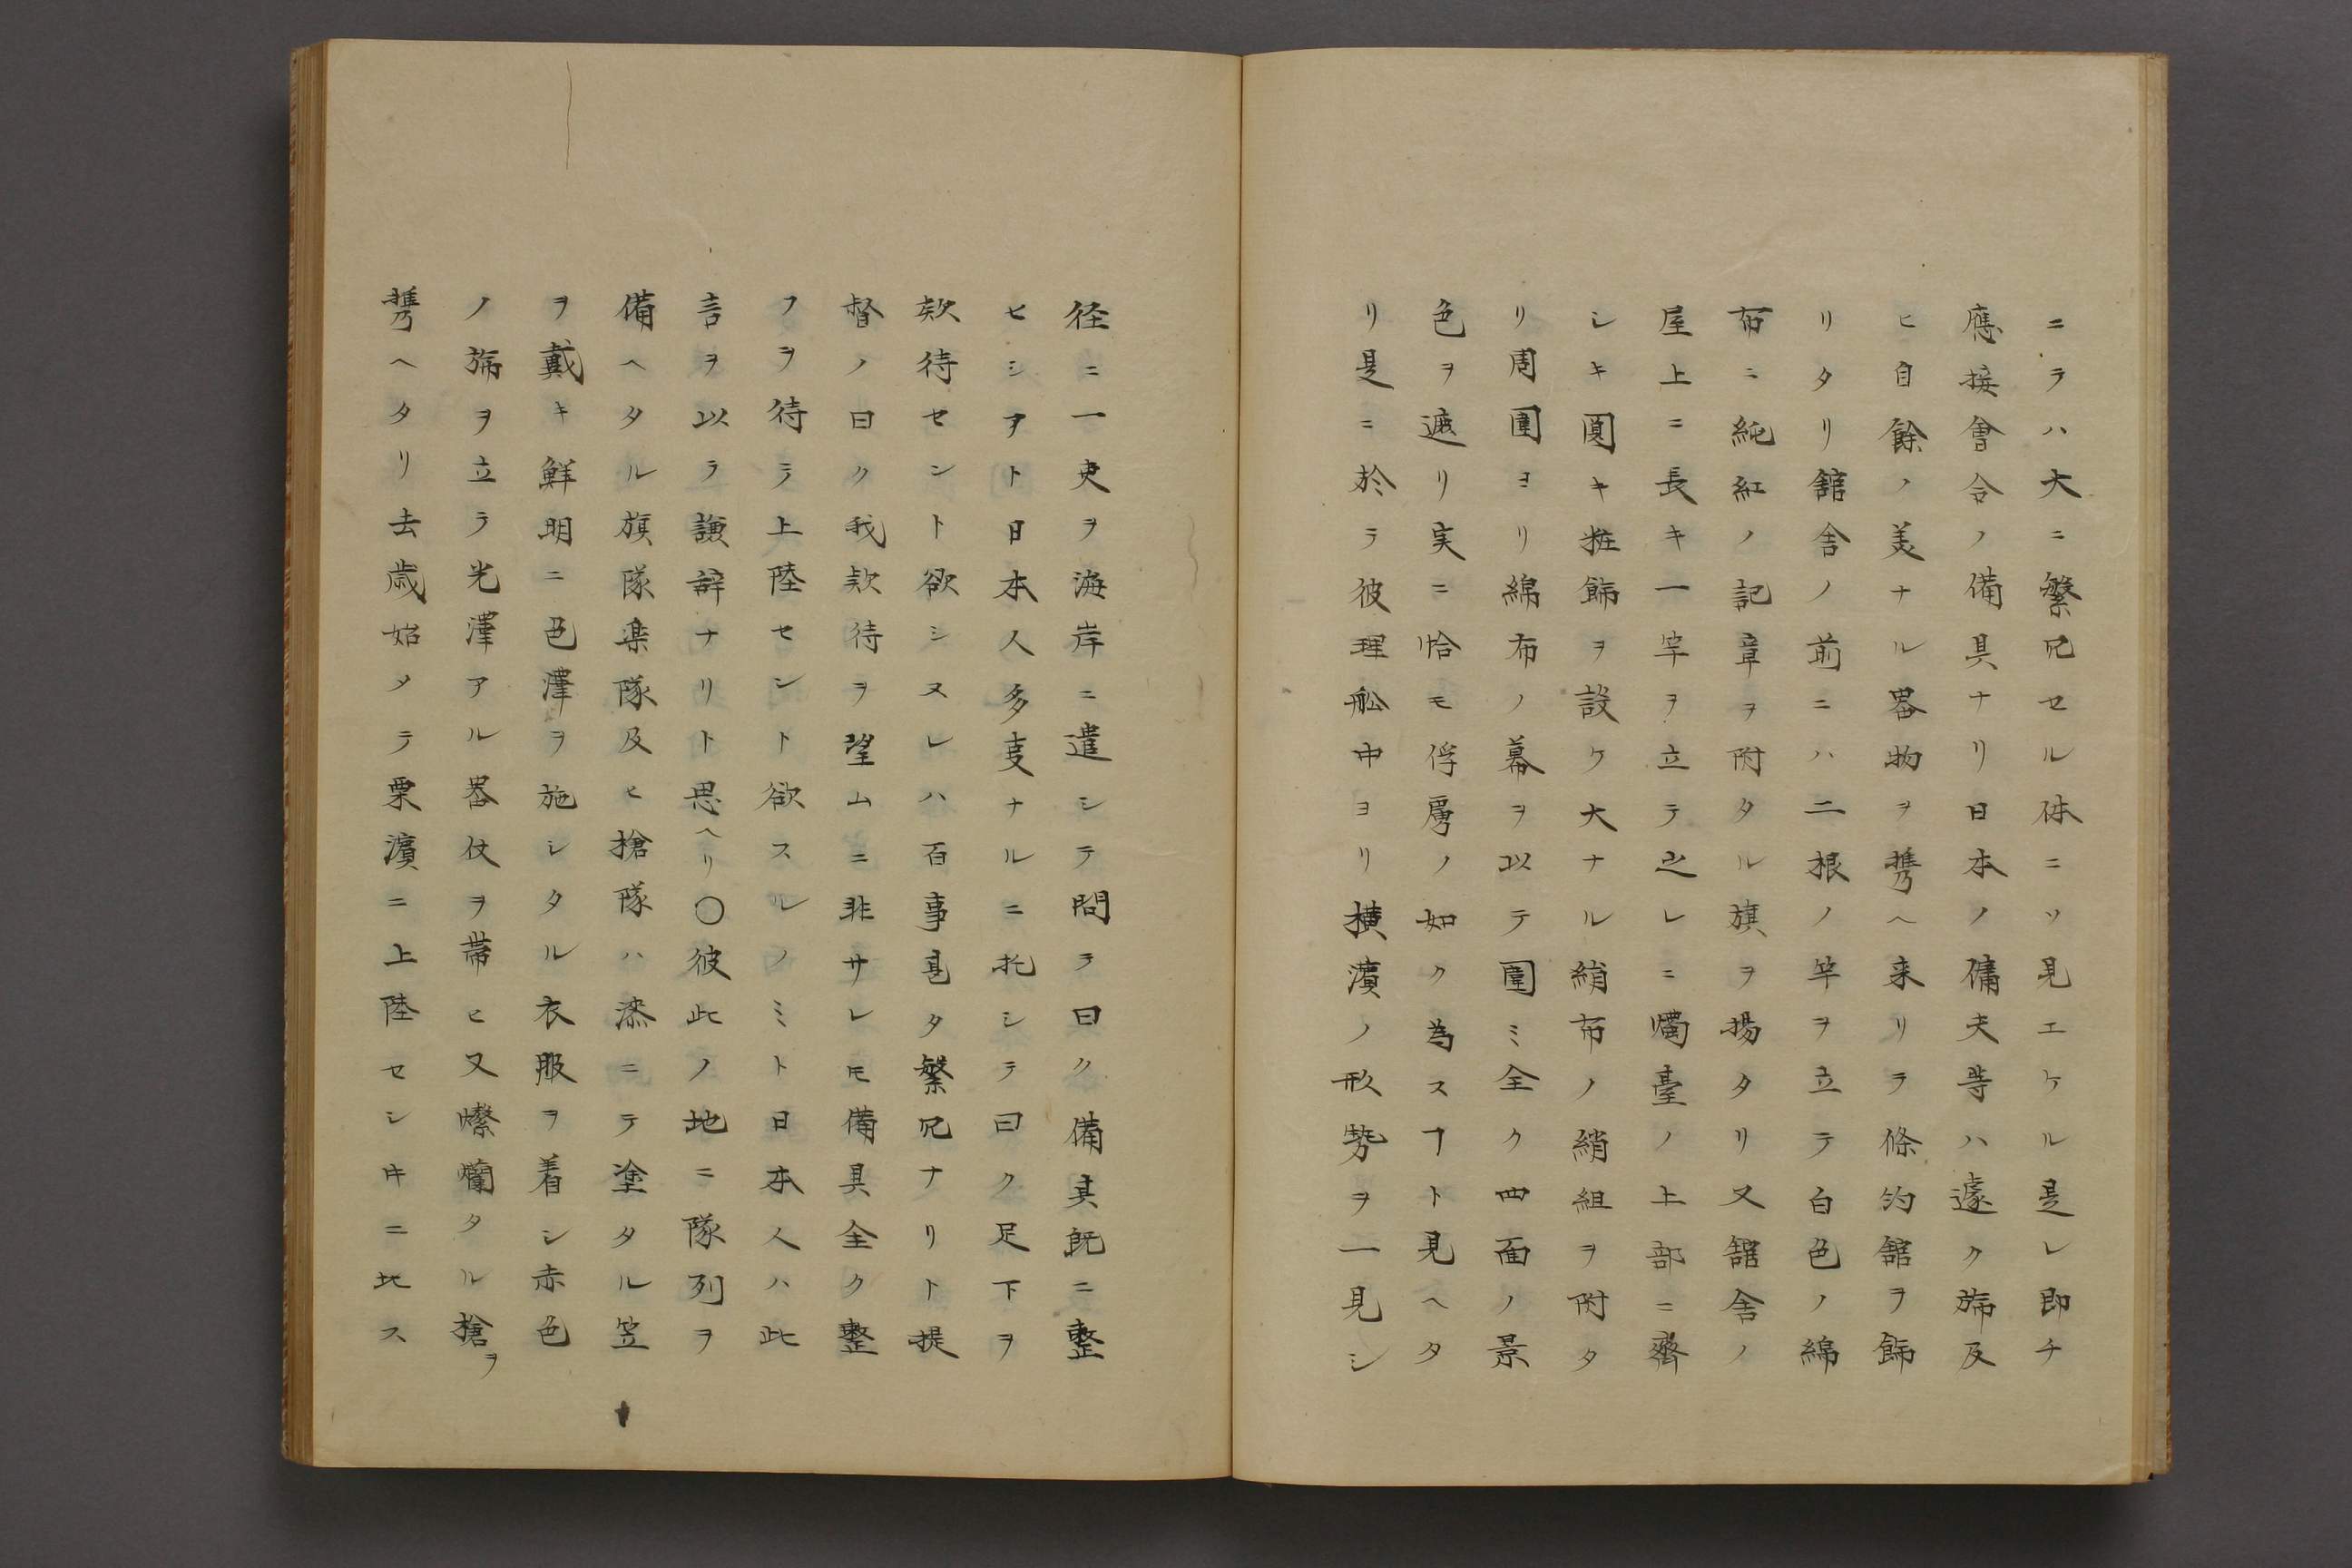 ニテハ大ニ繁冗セル体ニソ見エケル是レ即チ
應接會合ノ備具ナリ日本ノ傭夫等ハ遽ク旆及
ヒ自餘ノ美ナル噐物ヲ携ヘ来リテ條約舘ヲ飾
リタリ舘舎ノ前ニハ二根ノ竿ヲ立テ白色ノ綿
布ニ純紅ノ記章ヲ附タル旗ヲ揚タリ又舘舎ノ
屋上ニ長キ一竿ヲ立テ之レニ燭臺ノ上部ニ齊
シキ圓キ粧飾ヲ設ケ大ナル綃布ノ綃組ヲ附タ
リ周圍ヨリ綿布ノ幕ヲ以テ圍ミ全ク四面ノ景
色ヲ遮リ実ニ恰モ俘虜ノ如ク為スヿト見ヘタ
リ是ニ於テ彼理舩中ヨリ横濱ノ形勢ヲ一見シ
径ニ一吏ヲ海岸ニ遣シテ問テ曰ク備具既ニ整
ヒシヲト日本人多叓ナルニ托シテ曰ク足下ヲ
欵待セント欲シヌレハ百事甚タ繁冗ナリト提
督ノ曰ク我欵待ヲ望ムニ非サレモ備具全ク整
フヲ待テ上陸セント欲スルノミト日本人ハ此
言ヲ以テ謙辞ナリト思ヘリ〇彼此ノ地ニ隊列ヲ
備ヘタル旗隊楽隊及ヒ槍隊ハ漆ニテ塗タル笠
ヲ戴キ鮮明ニ色澤ヲ施シタル衣服ヲ着シ赤色
ノ旆ヲ立テ光澤アル噐仗ヲ帯ヒ又燦爛タル槍ヲ
携ヘタリ去歳始メテ栗濱ニ上陸セシキニ比ス